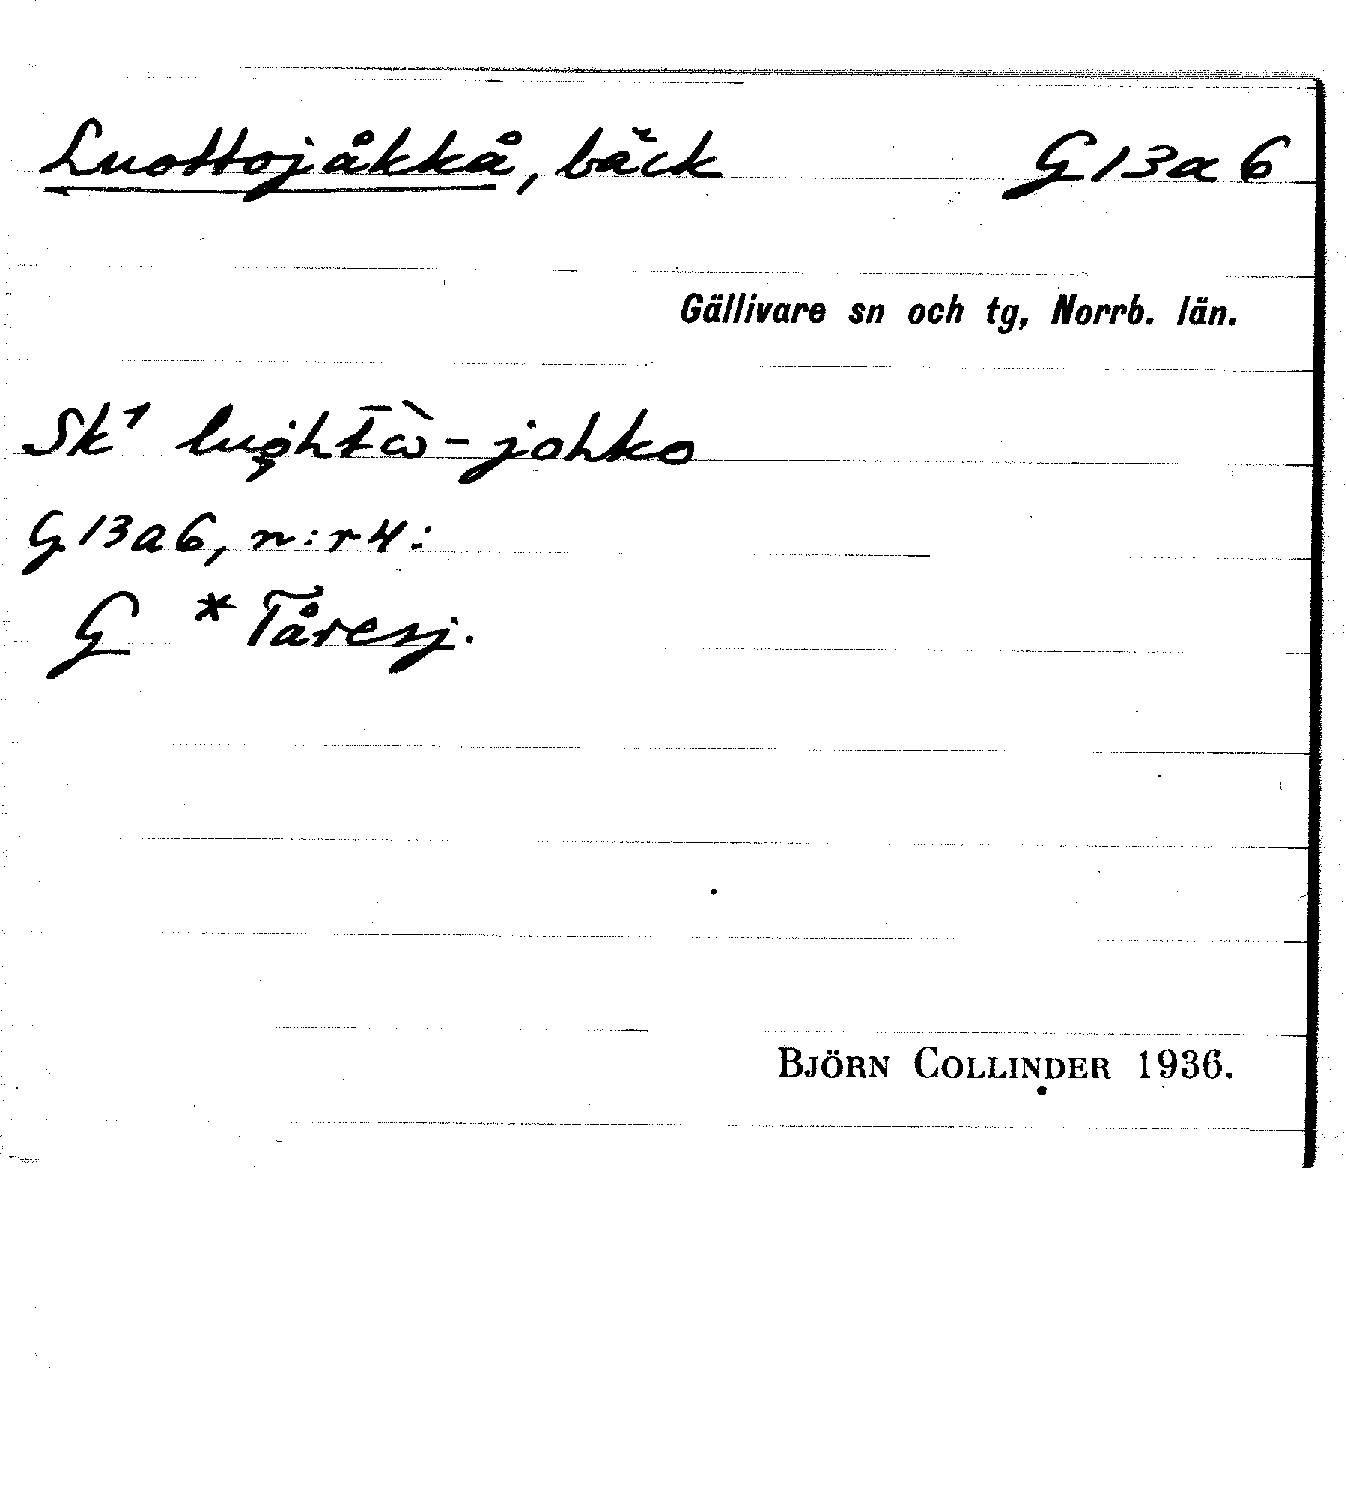 Luottojåkkå, bäck G 13 a 6
Gällivare sn och tg, Norrb. län.
Sk¹ -johko
G 13 a 6, n:r 4:
G * Tåresj.
BJÖRN COLLINDER 1936.